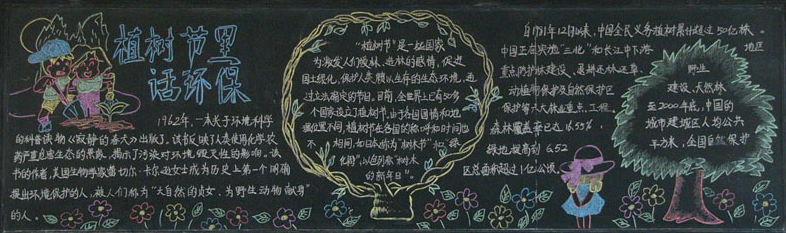 植树节里
话环保
1962年,一本关于环境科学
的科普读物《寂静的春天》出版了,该书反映了人类使用化学农
药严重危害生态的景象,揭示了污染对环境毁灭性的影响。该
书的作者,美国生物学家蕾切尔·卡尔逊女士成为历史上第一个明确
提出环境保护的人,被人们称为"大自然的贞女,为野生动物献身"
的人。
"植树节"是一些国家
为激发人们爱林、造林的感情,促进
国土绿化,保护人类赖以生存的生态环境,通
过立法确定的节日。目前,全世界已有50多
个国家设立了植树节。由于各国国情和地
理位置不同,植树节在各国的称呼和时间也不
相同,如日本称为"树木节"和"绿
化周",以色列称"树木
的新年日"。
自1981年12月以来,中国全民义务植树累计超过50亿株。
中国正在实施"三北"和长江中下游 地区
重点防护林建设、退耕还林还草、
动植物保护及自然保护区
保护等六大林业重点工程。
森林覆盖率已达16.55%
绿地提高到6.52
区总面积超过1亿公顷。
野生
建设,天然林
至2000年底,中国的
城市建成区人均公共
平方米,全国自然保护